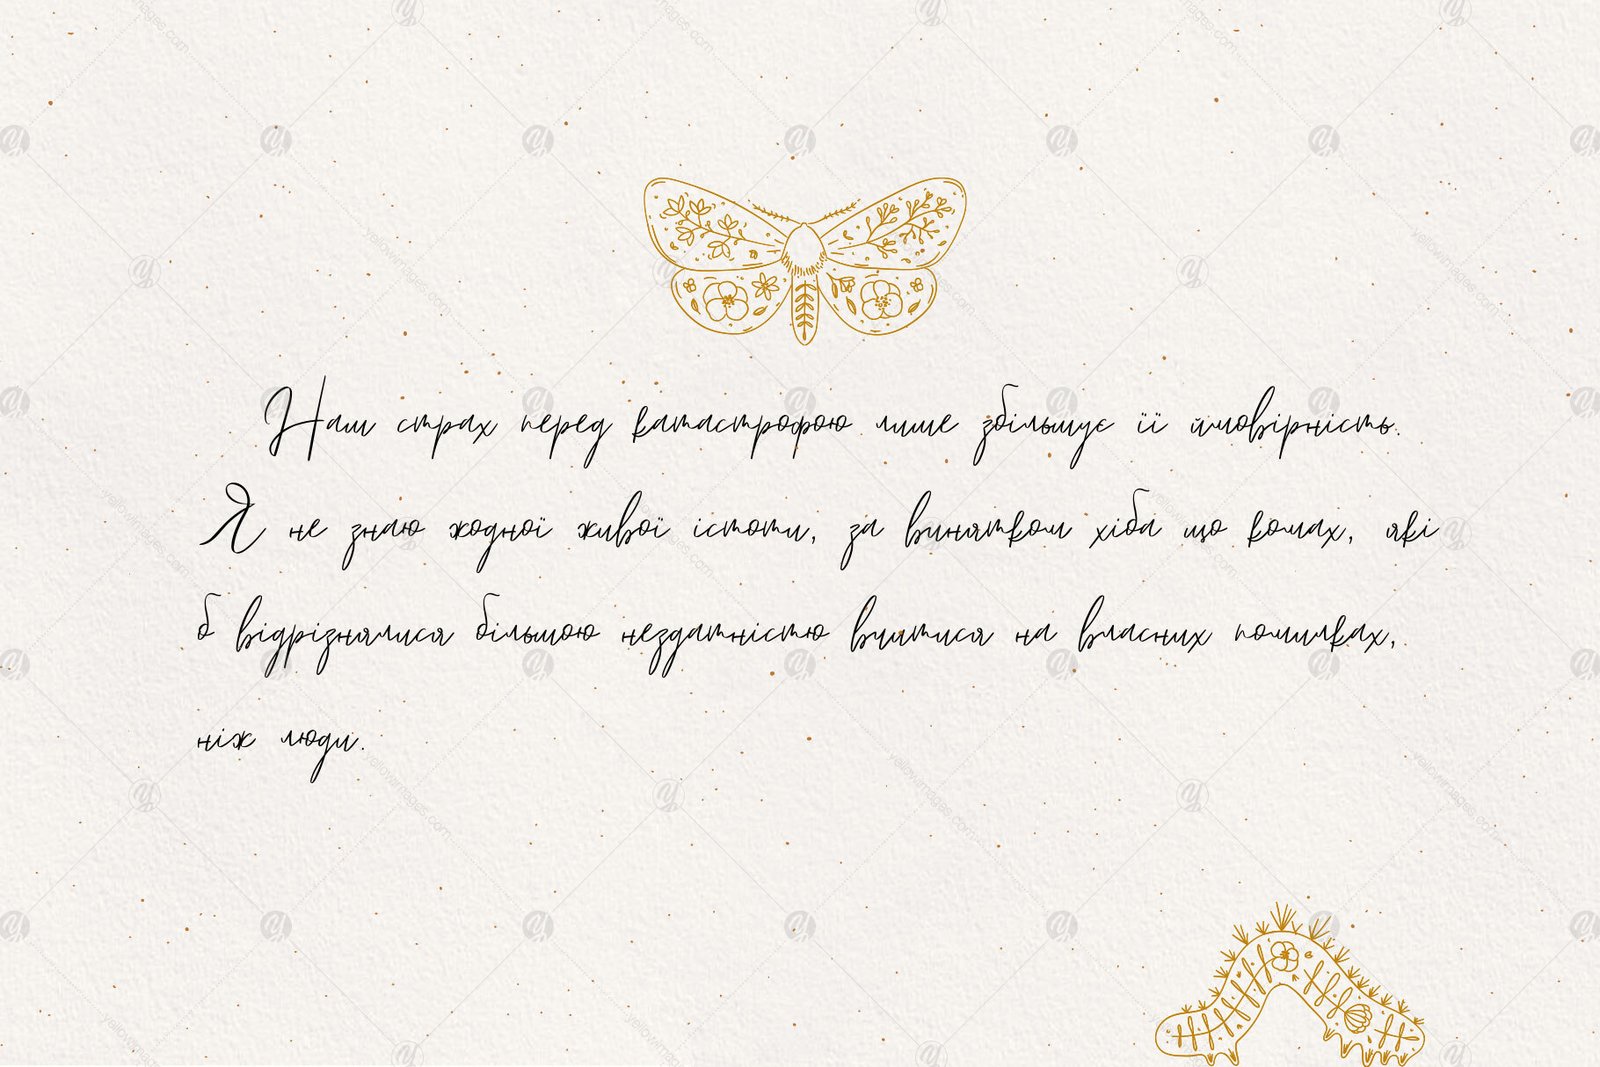 Наш страх перед катастрофою лише збільшує її ймовірність.
Я не знаю жодної живої істоти, за винятком хіба що комах, які
б відрізнялися більшою нездатністю вчитися на власних помилках,
ніж люди.
yellowimages.com